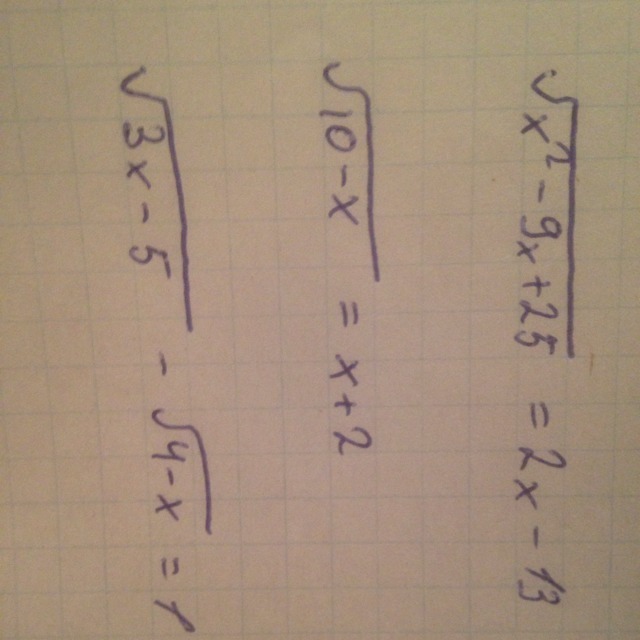 √x² - 9x + 25 = 2x - 13
√10 - x = x + 2
√3x - 5 - √4 - x = 1